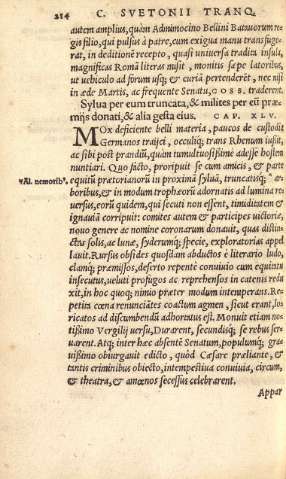 214 C. SVETONII TRANQ.
autem amplius, quàm Adminocino Bellini Batauorum re-
gis filio, qui pulsus à patre, cum exigua manu transfuge-
rat, in deditionẽ recepto, quasi uniuersa tradita insula,
magnificas Romã literas misit, monitis sæpe latoribus,
ut uehiculo ad forum usq; & curiã pertenderẽt, nec nisi
in æde Martis, ac frequente Senatu, COSS. traderent.
Sylua per eum truncata, & milites per eũ præ-
mijs donati, & alia gesta eius. CAP. XLV.
MOx deficiente belli materia, paucos de custodia
Germanos traijci, occuliq; trans Rhenum iussit,
ac sibi post prandiũ, quàm tumultuosissimè adesse hostem
nuntiari. Quo facto, proripuit se cum amicis, & parte
equitũ prætorianorũ in proximã syluã, truncatisq; ar-
*Al. nemorib⁹.
boribus, & in modum trophæorũ adornatis ad lumina re
uersus, eorũ quidem, qui secuti non essent, timiditatem &
ignauiã corripuit: comites autem & participes uictoriæ,
nouo genere ac nomine coronarum donauit, quas distin-
ctas solis, ac lunæ, syderumq; specie, exploratorias appel
lauit. Rursus obsides quosdam abductos è literario ludo,
clamq; præmissos, deserto repentè conuiuio cum equitatu
insecutus, ueluti profugos ac reprehensos in catenis redu
xit, in hoc quoq; mimo præter modum intemperans. Re-
petita cœna renunciantes coactum agmen, sicut erant, lo-
ricatos ad discumbendũ adhortatus est. Monuit etiam no
tissimo Vergilij uersu, Durarent, secundisq; se rebus ser-
uarent. Atq; inter hæc absentẽ Senatum, populumq; gra
uissimo obiurgauit edicto, quòd Cæsare præliante, &
tantis criminibus obiecto, intempestiua conuiuia, circum,
& theatra, & amœnos secessus celebrarent.
Appar